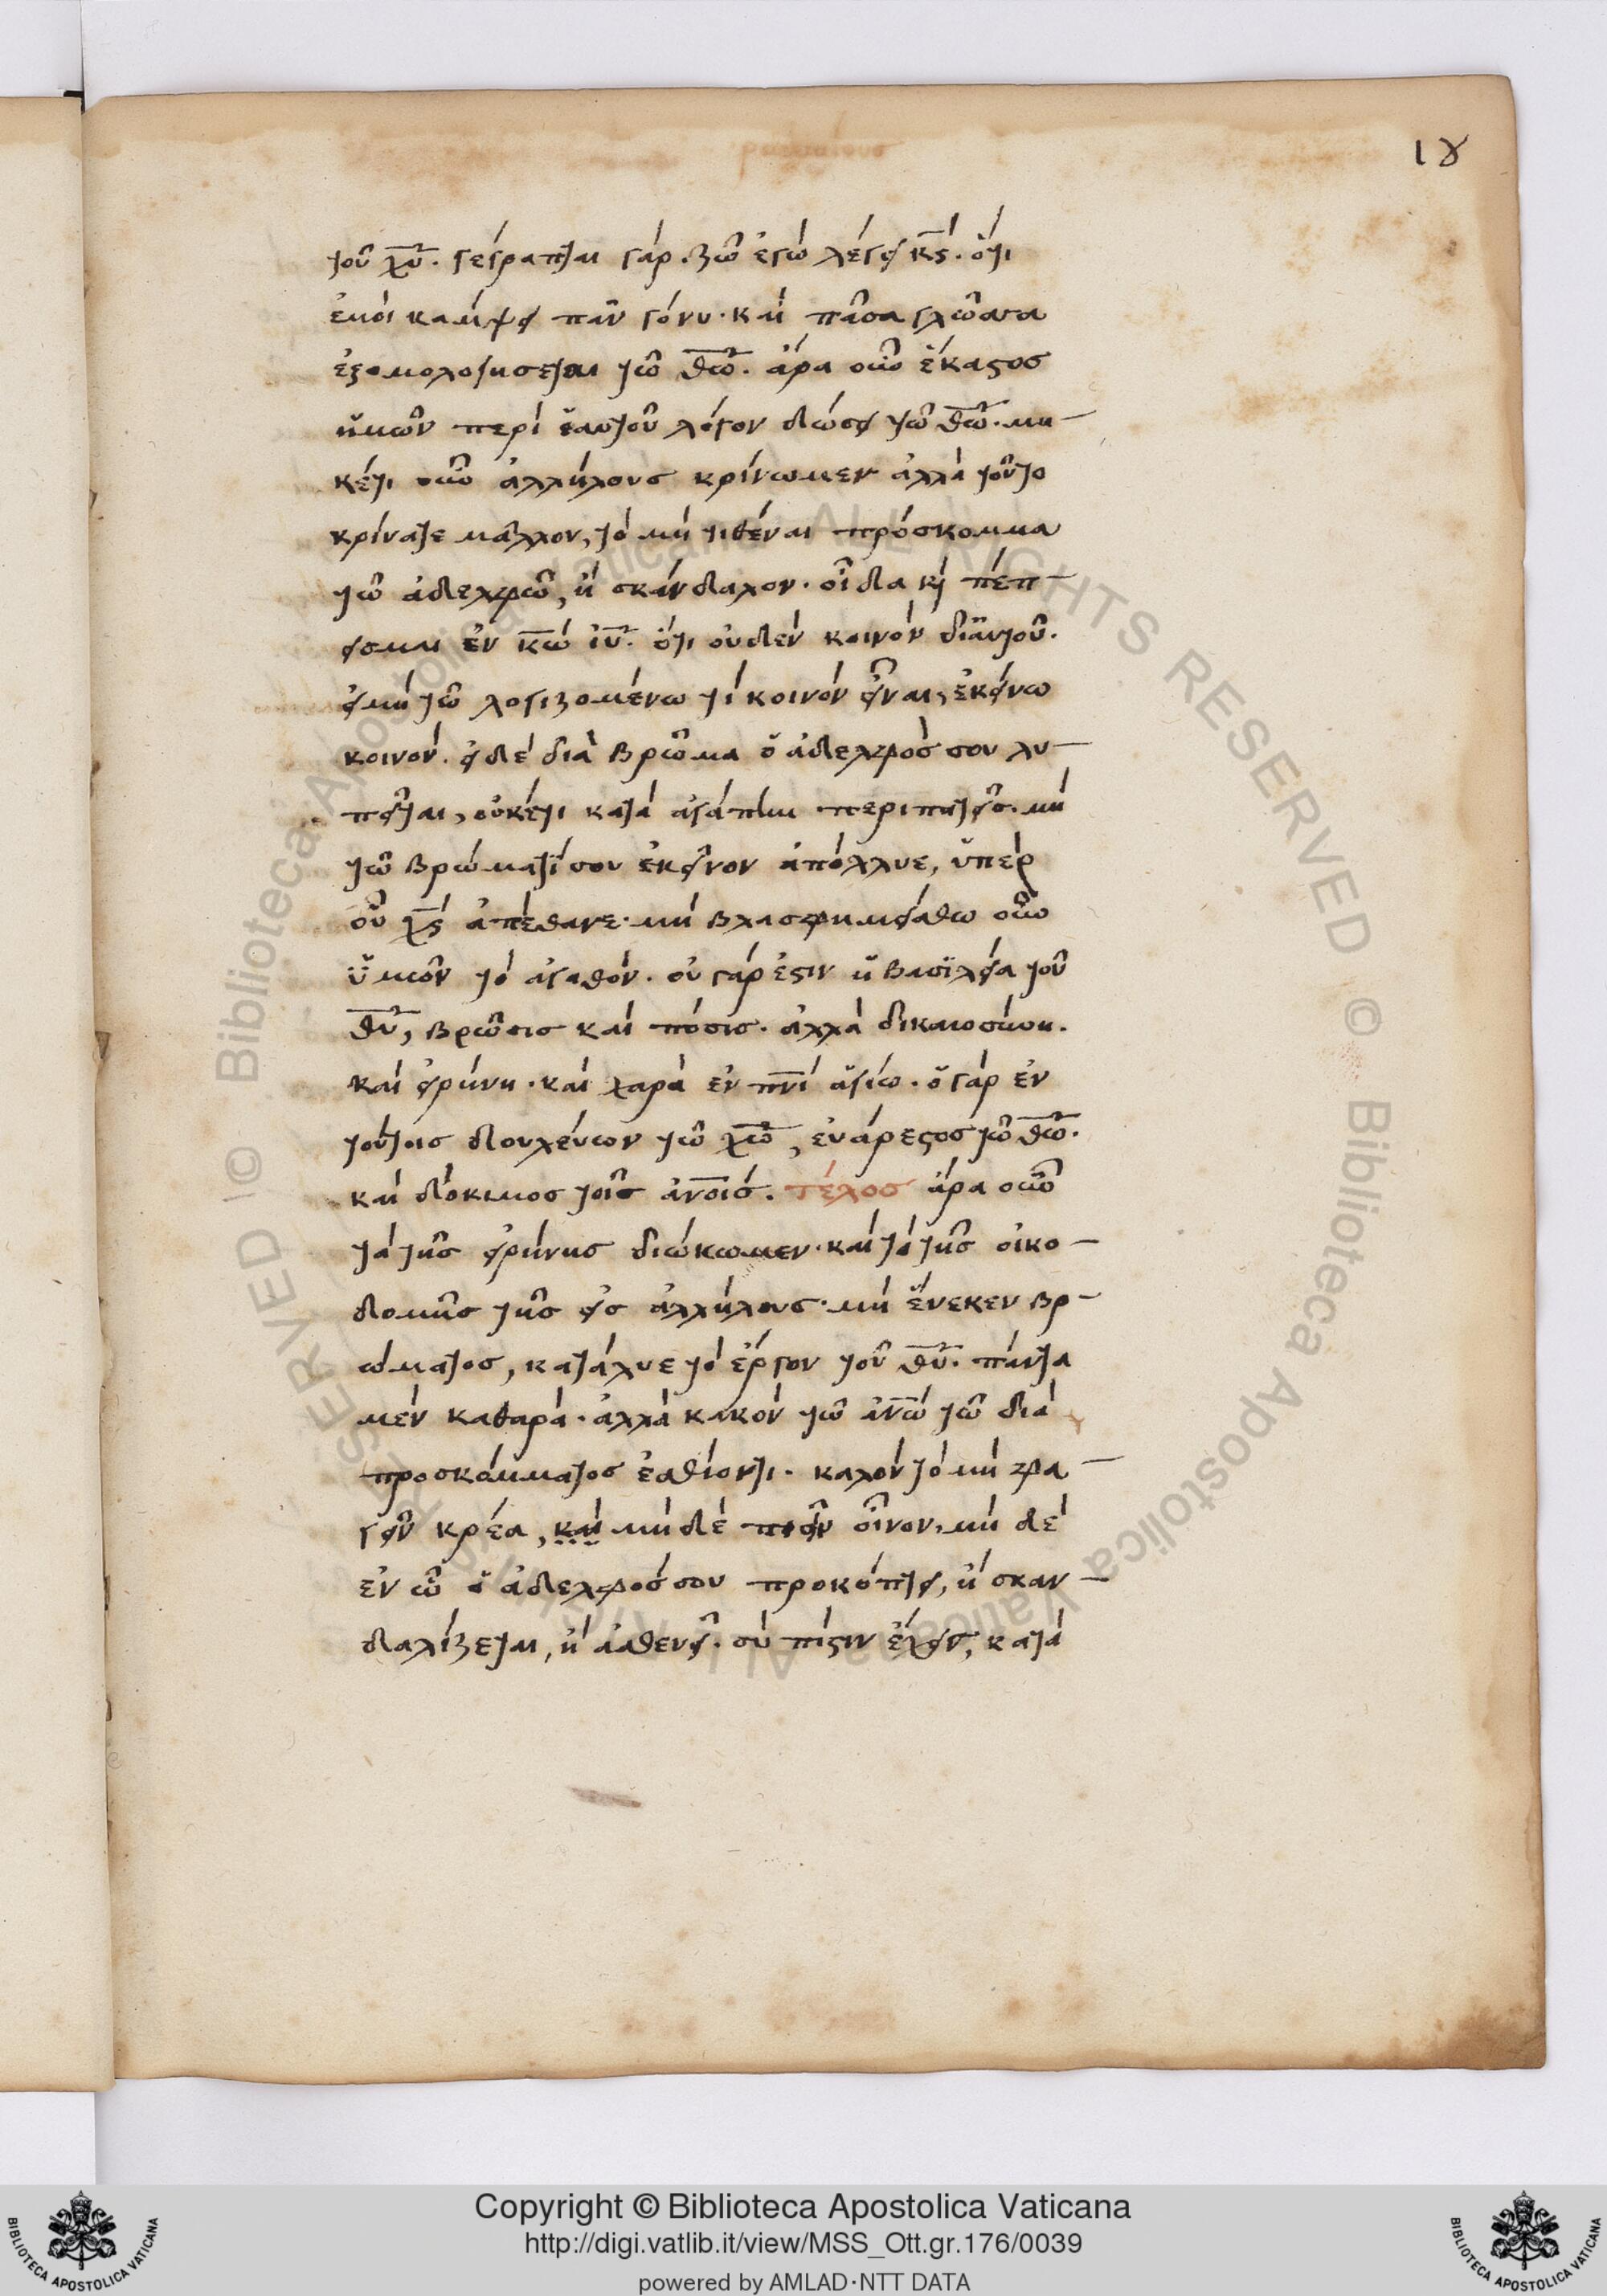 ιγ
τοῦ χυ̅. γέγραπται γάρ. ζῶ ἐγὼ λέγει κς̅. ὅτι
ἐμοὶ κάμψει πᾶν γόνυ. καὶ πᾶσα γλῶσσα
ἐξομολογήσεται τῶ θω̅. ἄρα οὖν ἕκαστος
ἡμῶν περὶ ἑαυτοῦ λόγον δώσει τῶ θω̅. μη-
κέτι οὖν ἀλλήλους κρίνωμεν ἀλλὰ τοῦτο
κρίνατε μᾶλλον, τὸ μὴ τιθέναι πρόσκομμα
τῶ ἀδελφῶ, ἢ σκάνδαλον. οἶδα κὶ πέπ-
εισμαι ἐν κω̅ ιυ̅. ὅτι οὐδὲν κοινὸν δι' αὐτοῦ.
εἰ μὴ τῶ λογιζομένω τὶ κοινὸν εἶναι, ἐκείνω
κοινόν. εἰ δὲ διὰ βρῶμα ὁ ἀδελφός σου λυ-
πεῖται, οὐκέτι κατὰ ἀγάπην περιπατεῖς. μὴ
τῶ βρώματί σου ἐκεῖνον ἀπόλλυε, ὑπὲρ
οὗ χς̅ ἀπέθανε. μὴ βλασφημείσθω οὖν
ὑμῶν τὸ ἀγαθόν. οὐ γάρ ἐστιν ἡ βασιλεία τοῦ
θυ̅, βρῶσις καὶ πόσις. ἀλλὰ δικαιοσύνη.
καὶ εἰρήνη. καὶ χαρὰ ἐν πνι̅ ἁγίω. ὁ γὰρ ἐν
τούτοις δουλεύων τῶ χω̅, εὐάρεστος τῶ θω̅.
καὶ δόκιμος τοῖς ἀνοις̅. τέλος ἄρα οὖν
τὰ τῆς εἰρήνης διώκωμεν. καὶ τὰ τῆς οἰκο-
δομῆς τῆς εἰς ἀλλήλους. μὴ ἕνεκεν βρ-
ώματος, κατάλυε τὸ ἔργον τοῦ θυ̅. πάντα
μὲν καθαρά. ἀλλὰ κακὸν τῶ ἀνω̅ τῶ διὰ
προσκόμματος ἐσθίοντι. καλὸν τὸ μὴ φα-
γεῖν κρέα, καὶ μὴ δὲ πιεῖν οἶνον, μὴ δὲ
ἐν ὧ ὁ ἀδελφός σου προκόπτει, ἢ σκαν-
δαλίζεται, ἢ ἀσθενεῖ. σὺ πίστιν ἔχεις, κατὰ
Copyright © Biblioteca Apostolica Vaticana
http://digi.vatlib.it/view/MSS_Ott.gr.176/0039
powered by AMLAD·NTT DATA
BIBLIOTECA APOSTOLICA VATICANA
BIBLIOTECA APOSTOLICA VATICANA